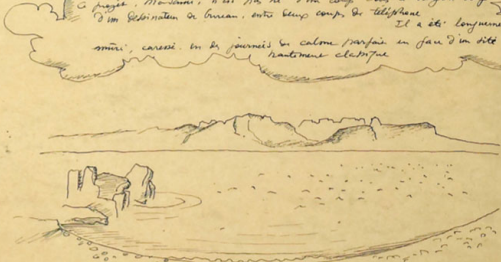 projet, Monsieur, n'est pas né d'un coup
d'un dessinateur de bureau, entre deux coups de téléphone.
Il a été longuement
mûri, caressé, en des journées de calme parfait en face d'un site
hautement classique